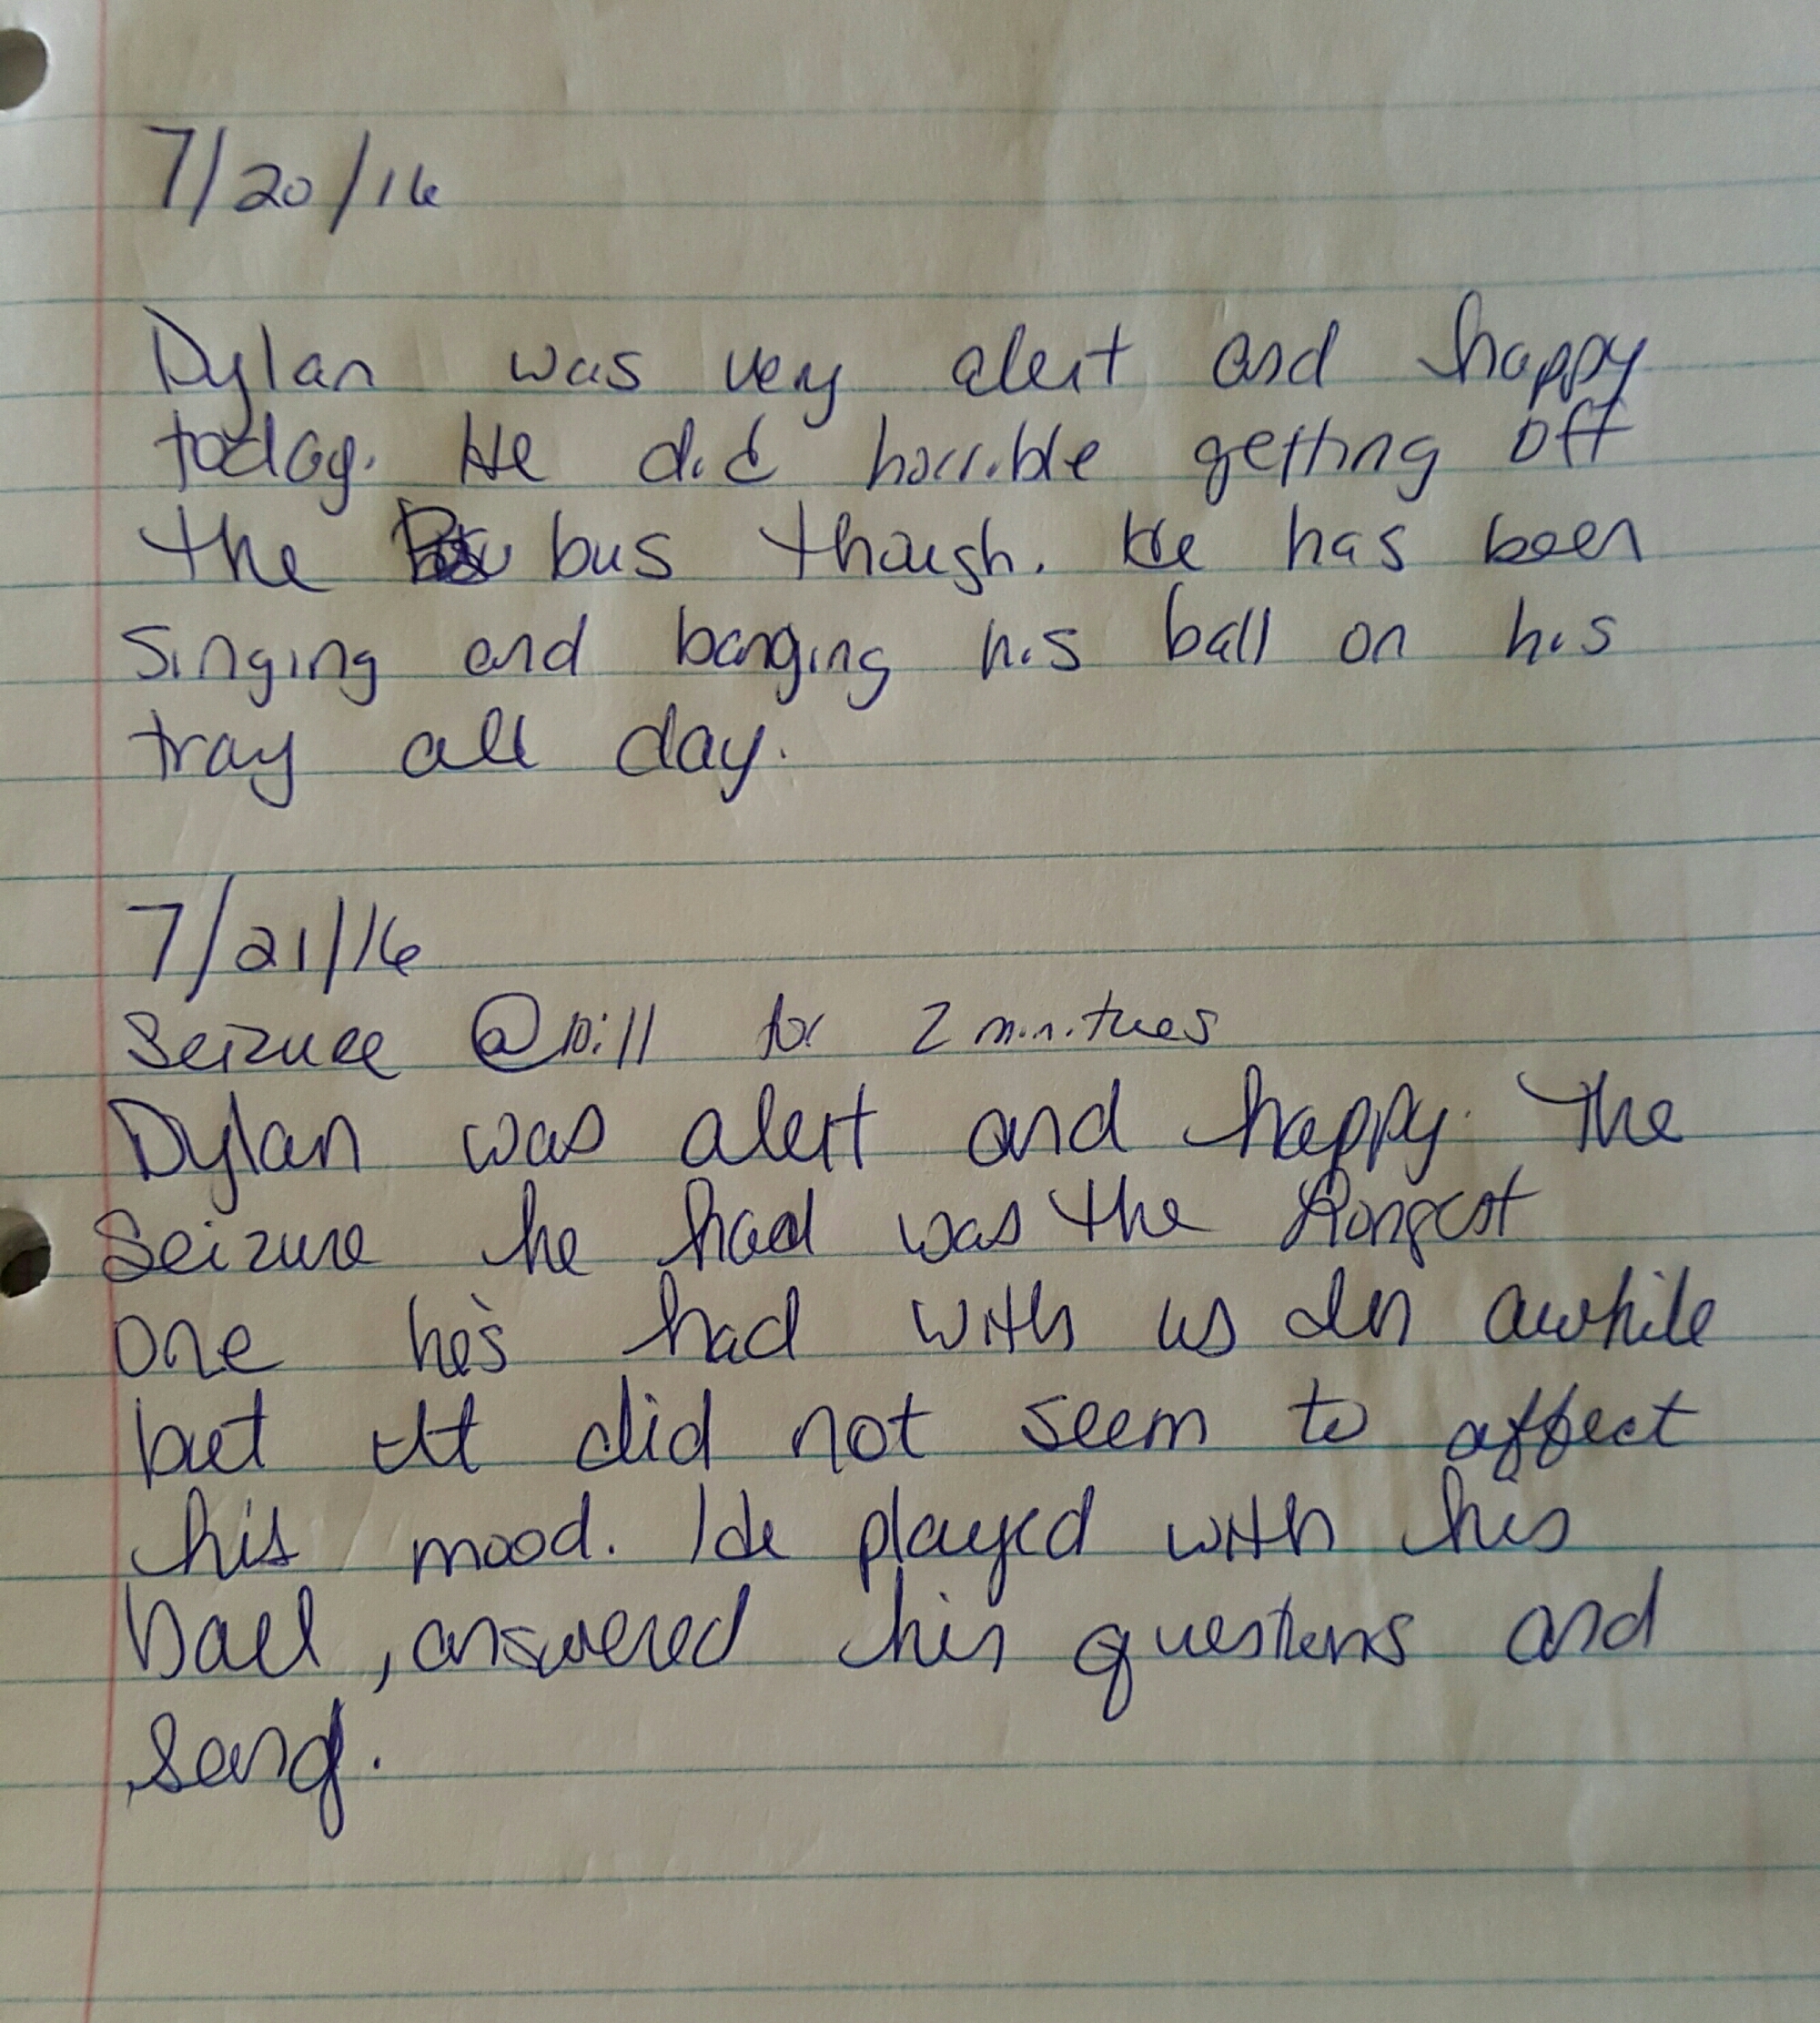 7/20/16
Dylan was very alert and happy
today. He did horrible getting off
the bus though. He has been
singing and banging his ball on his
tray all day.
7/21/16
Seizure @ 10:11 for 2 minitues
Dylan was alert and happy. The
seizure he had was the longest
one he's had with us in awhile
but it did not seem to affect
his mood. He played with his
ball, answered his questions and
sang.